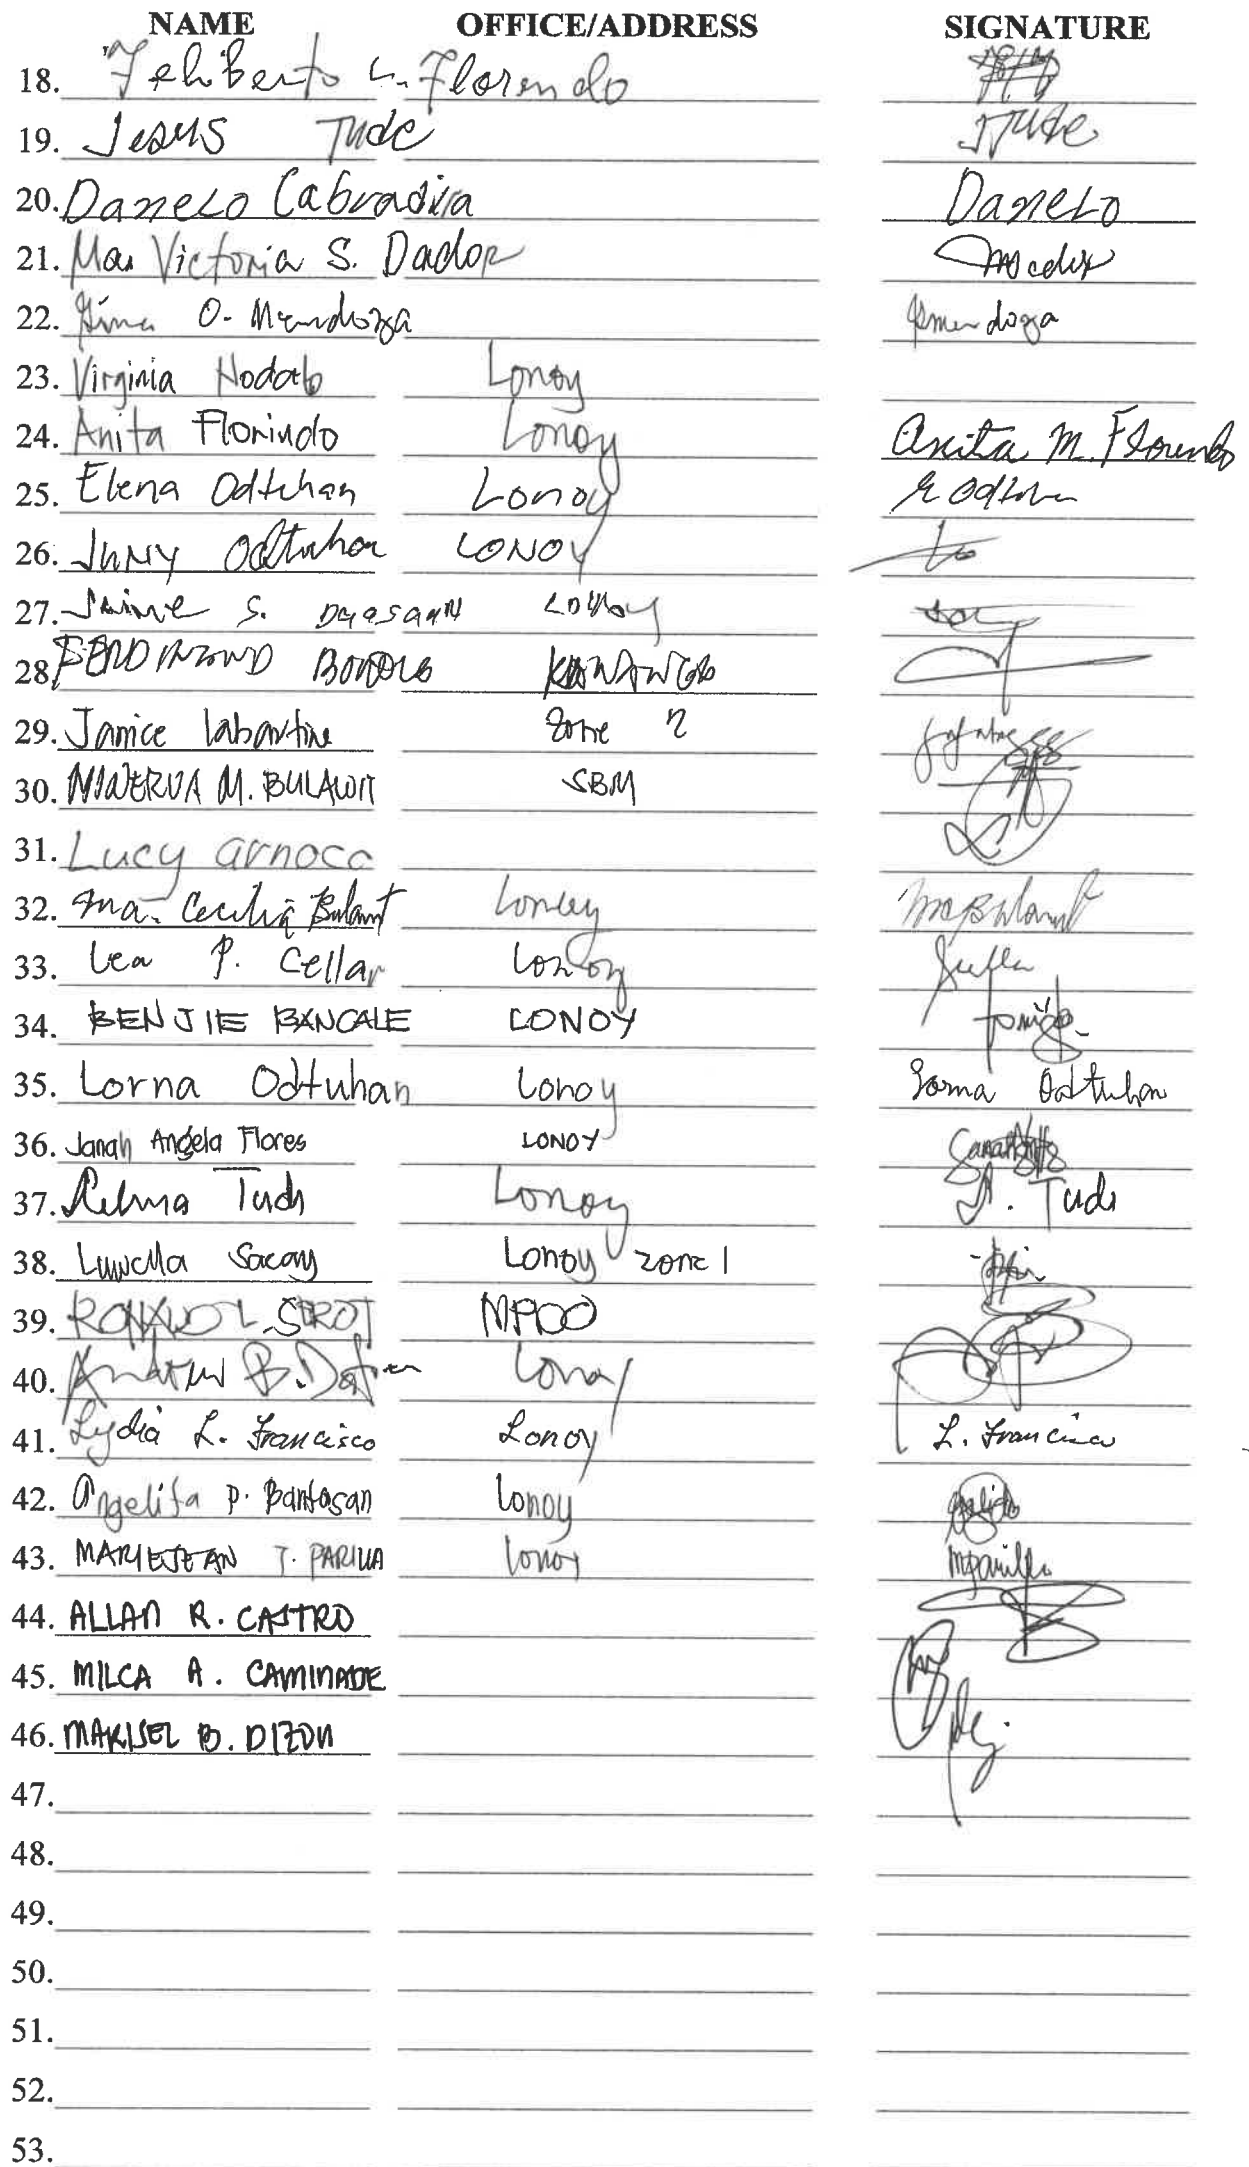 NAME OFFICE/ADDRESS SIGNATURE
18. Feliberto L. Florendo
19. Jesus Tude JTude
20. Danelo Cabradilla Danelo
21. Ma. Victoria S. Dador
22. Gina O. Mendoza Gmendoza
23. Virginia Hodalo Lonoy
24. Anita Florindo Lonoy Anita M. Florendo
25. Elena Odtuhan Lonoy E Odtuhan
26. Juny Odtuhan LONOY
27. Jaime S. Lonoy
28. FERDINAND KANANGO
29. Janice Labartine Zone 2
30. MINERVA M. BULAWIT SBM
31. Lucy arnoco
32. Ma. Cecilia Bulawit Lonoy
33. Lea P. Cellar Lonoy
34. BENJIE BANCALE LONOY
35. Lorna Odtuhan Lonoy Lorna Odtuhan
36. Janah Angela Flores LONOY
37. Relma Tude Lonoy R. Tude
38. Luwella Sacay Lonoy zone 1
39. RONALDO L. SEROT MPDO
40. B. Lonoy
41. Lydia L. Francisco Lonoy L. Francisco
42. Angelita P. Bantasan Lonoy
43. MARIEJEAN T. PARILLA Lonoy mjparilla
44. ALLAN R. CASTRO
45. MILCA A. CAMINADE
46. MARISEL B. DIZON
47.
48.
49.
50.
51.
52.
53.